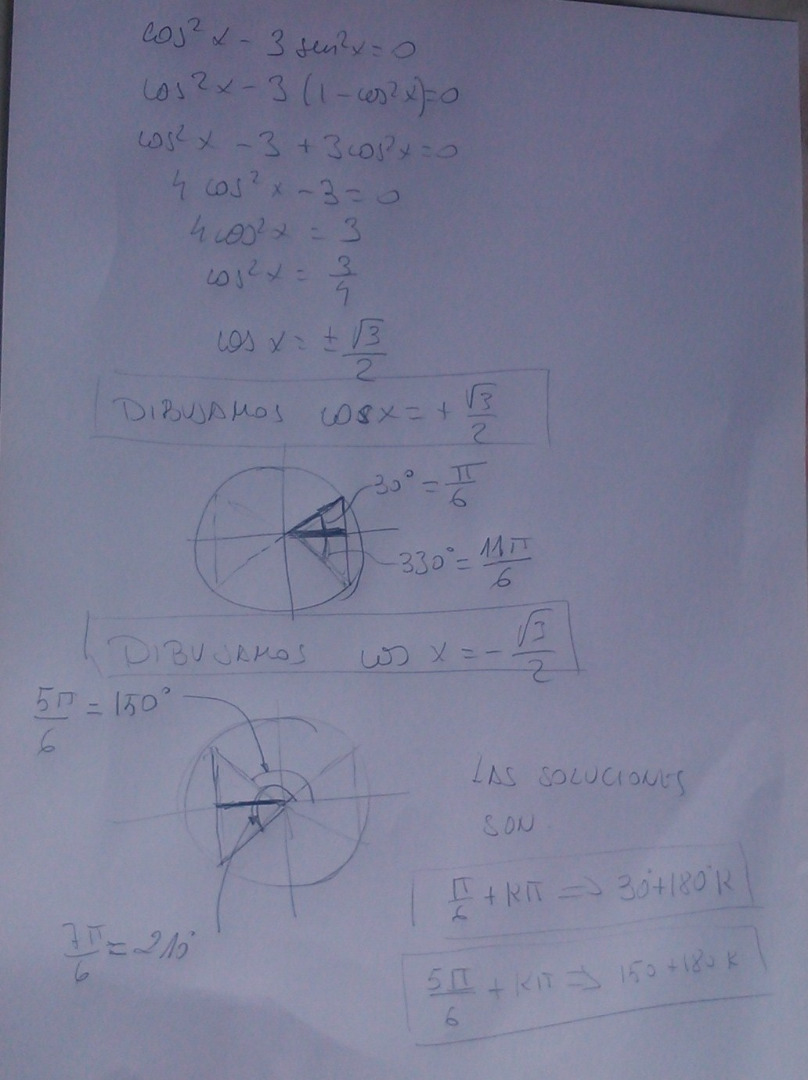 cos²x - 3 sen²x = 0
cos²x - 3 (1 - cos²x) = 0
cos²x - 3 + 3cos²x = 0
4 cos²x - 3 = 0
4cos²x = 3
cos²x = 3/4
cos x = ± √3/2
DIBUJAMOS cosx = + √3/2
30° = π/6
330° = 11π/6
DIBUJAMOS cos x = - √3/2
5π/6 = 150°
LAS SOLUCIONES
SON
π/6 + Kπ => 30°+180°K
7π/6 = 210°
5π/6 + Kπ => 150+180K